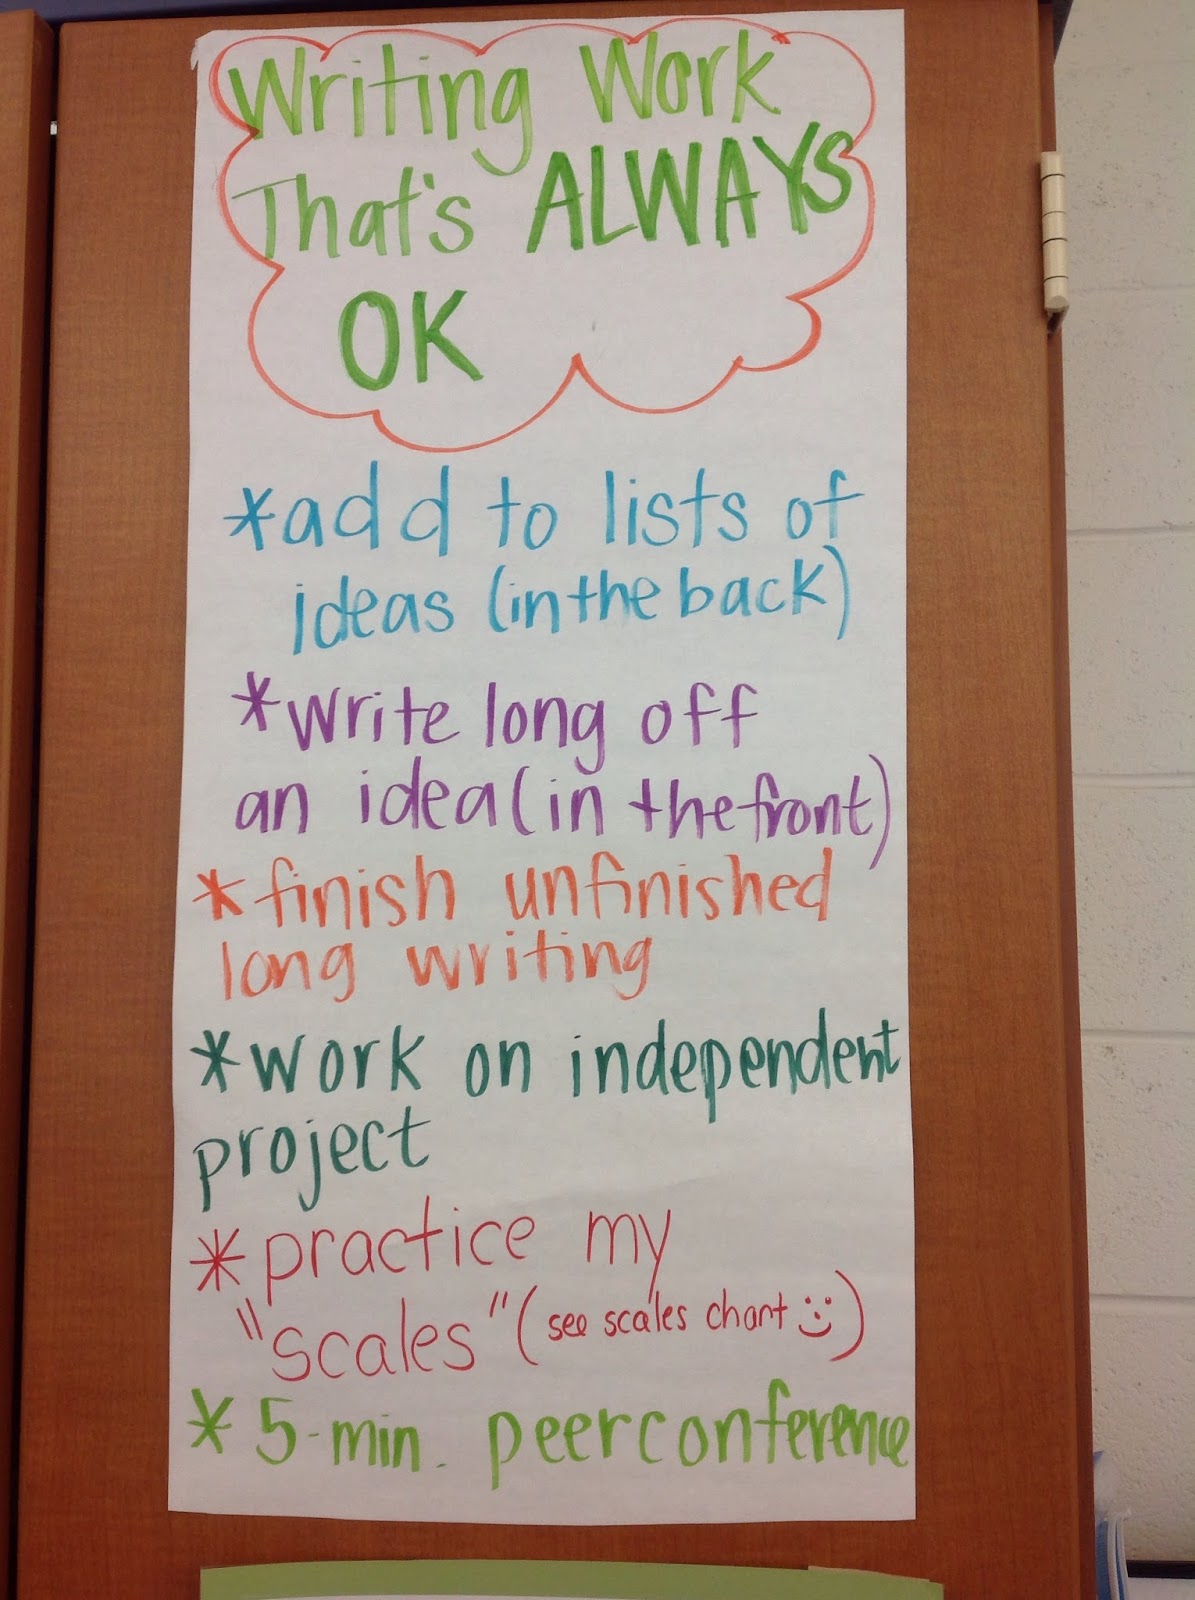 Writing Work
That's ALWAYS
OK
*add to lists of
ideas (in the back)
*write long off
an idea (in the front)
*finish unfinished
long writing
*work on independent
project
*practice my
"scales" (see scales chart )
*5-min. peer conference